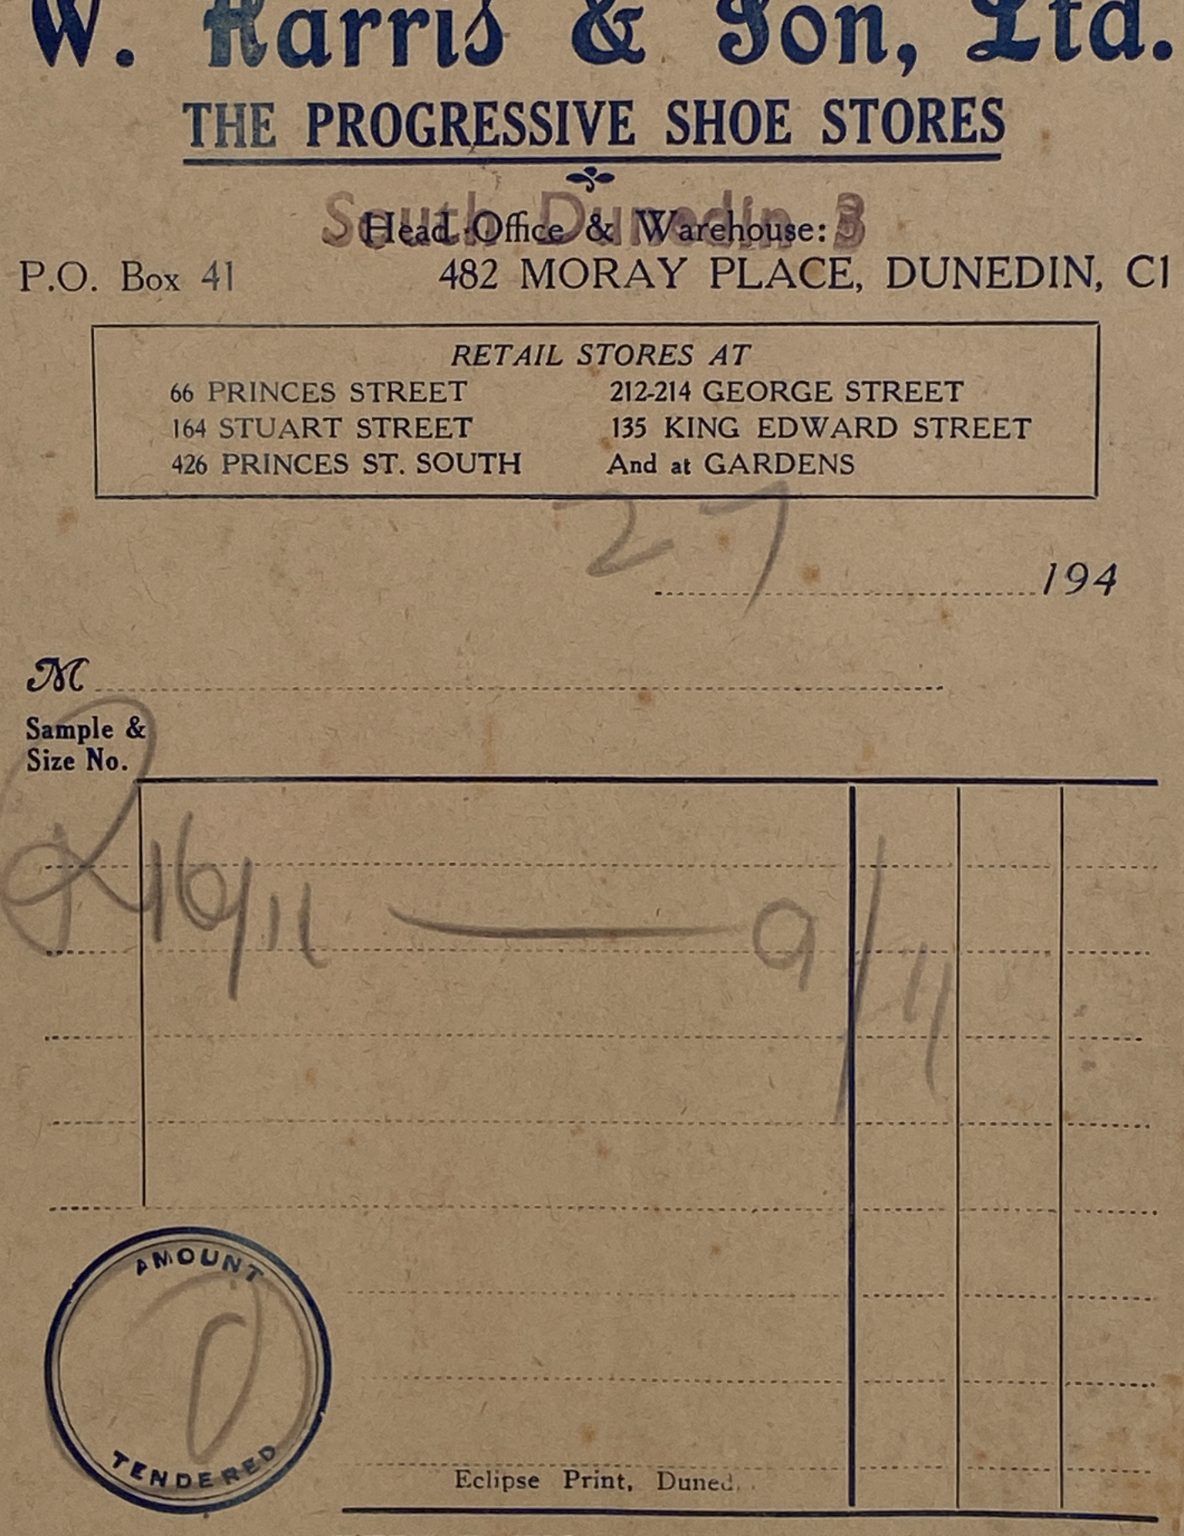 W. Harris & Son, Ltd.
THE PROGRESSIVE SHOE STORES
South Dunedin
Head Office & Warehouse:
P.O. Box 41 482 MORAY PLACE, DUNEDIN, C1
RETAIL STORES AT
66 PRINCES STREET 212-214 GEORGE STREET
164 STUART STREET 135 KING EDWARD STREET
426 PRINCES ST. SOUTH And at GARDENS
27
194
M
Sample &
Size No.
16/11 — 9/11
AMOUNT
TENDERED
Eclipse Print, Duned.